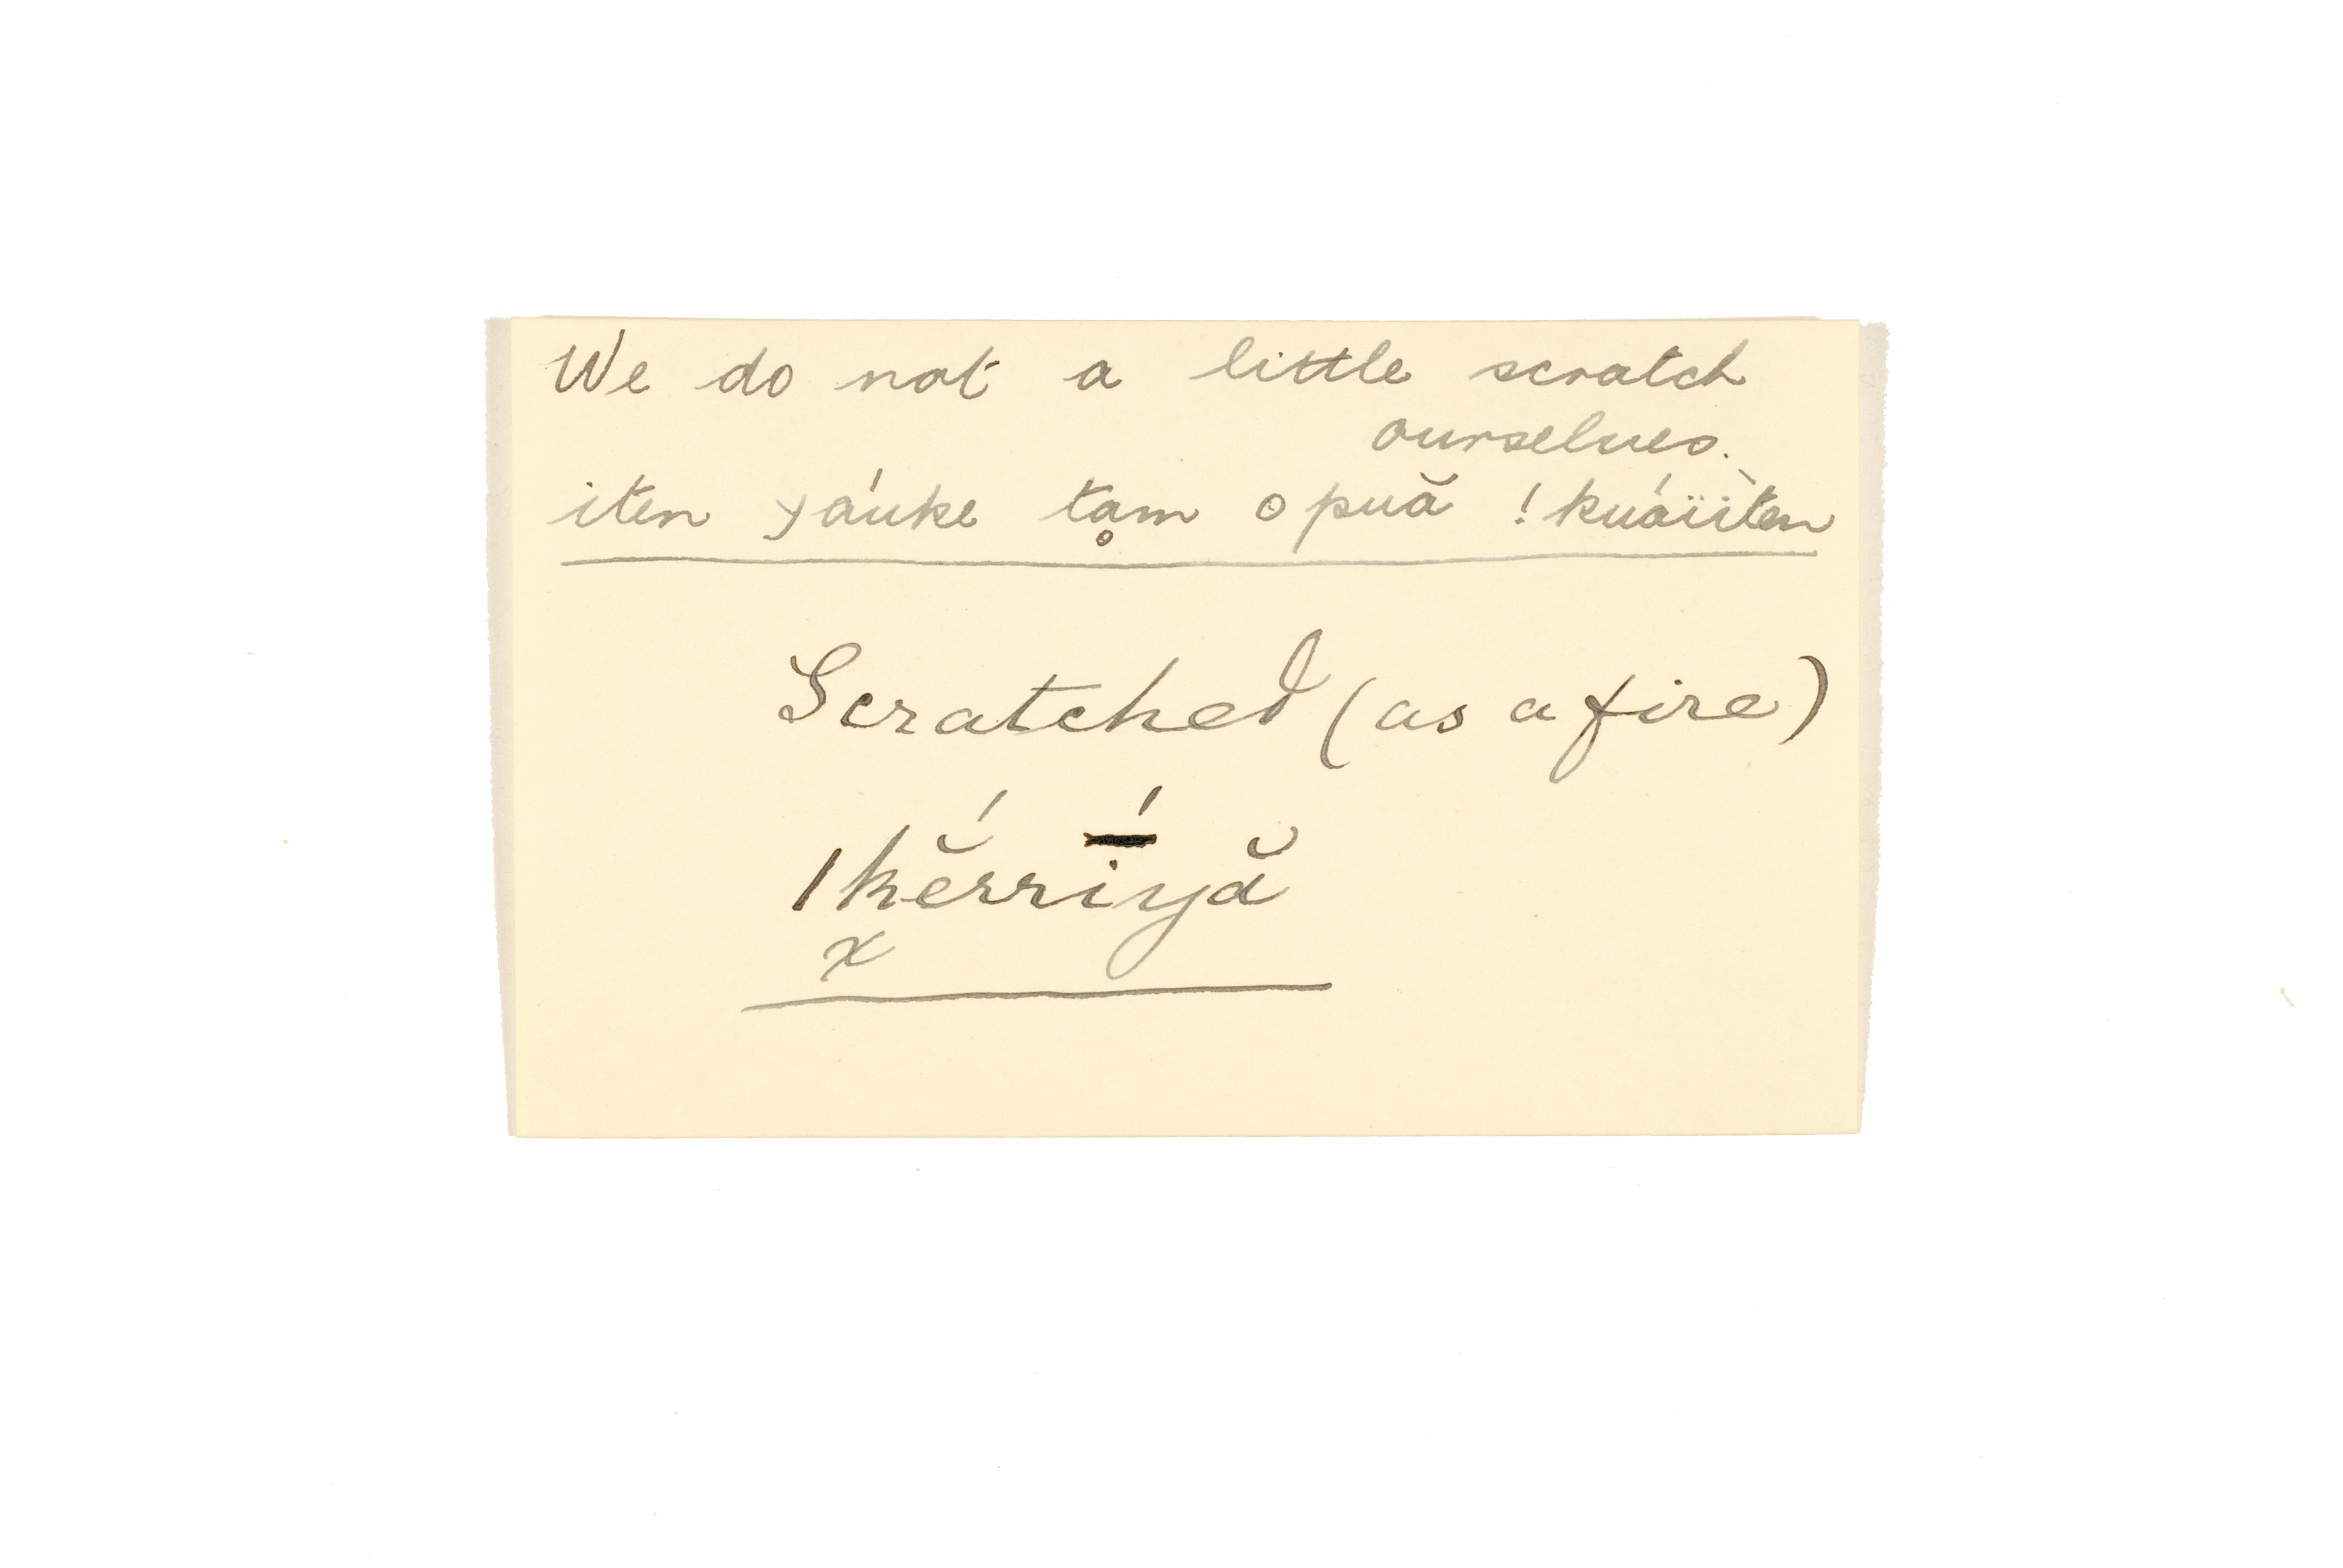 We do not a little scratch
ourselves.
iten χáuke tḁm o puă !kuáïïten
Scratched (as a fire)
|kĕ́rríyă
x